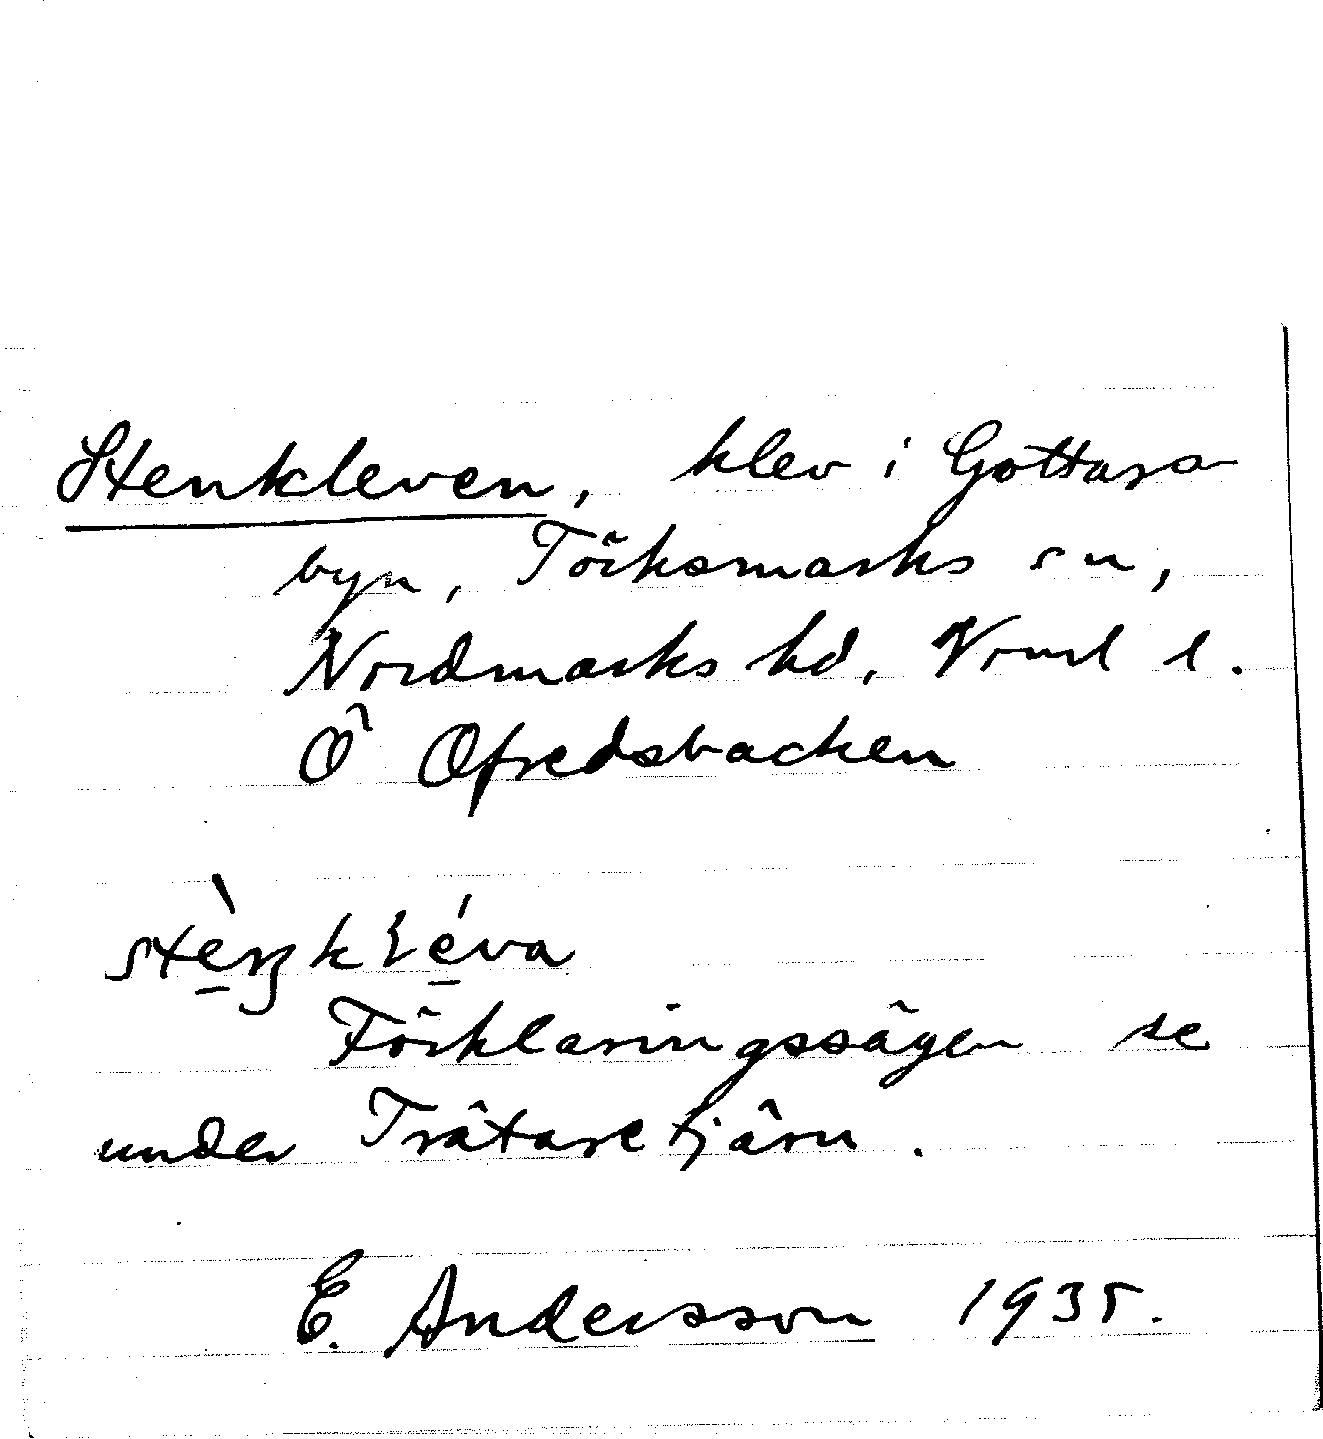 Stenkleven, klev i Gottars-
byn, Töcksmarks sn,
Nordmarks hd, Vrml l.
Ö Ofredsbacken
Förklaringssägen se
under Trätaretjärn.
E. Andersson 1935.